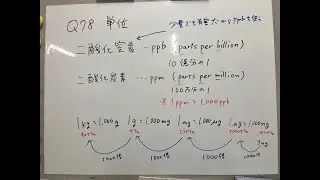 Q78 単位
少量でも有害だからppbを使う
二酸化窒素 … ppb (parts per billion)
10億分の1
二酸化炭素 … ppm (parts per million)
100万分の1
※ 1ppm = 1,000ppb
1kg = 1,000g 1g = 1,000mg 1mg = 1,000μg 1μg = 1,000ng
1000倍 1000倍 1000倍 1000倍